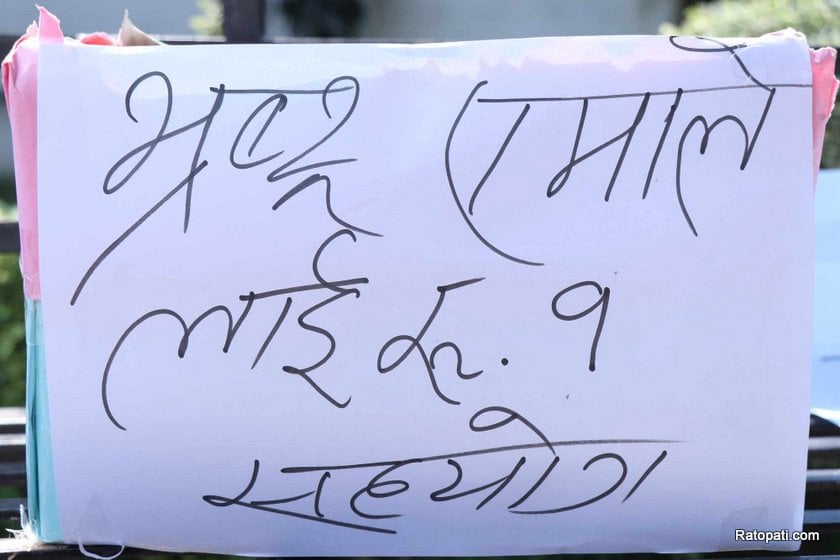 भ्रष्ट एमाले
लाई रू. १
सहयोग
Ratopati.com